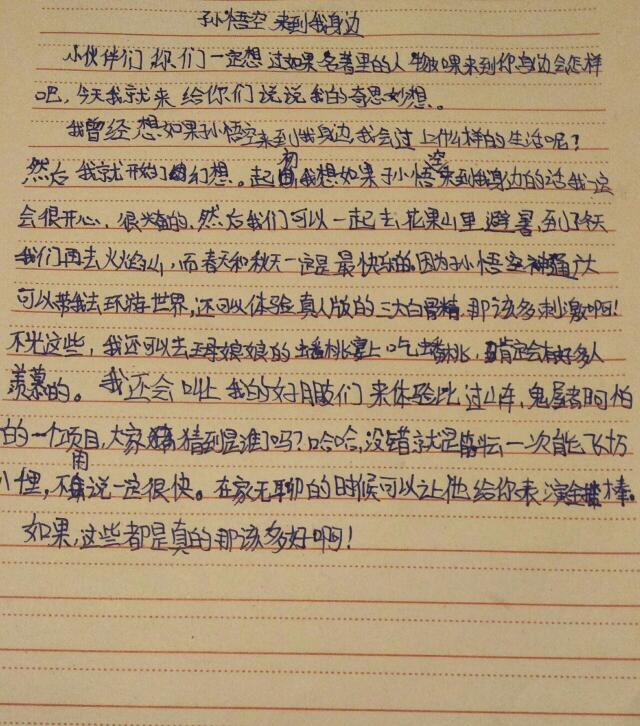 孙悟空来到我身边
小伙伴们你们一定想过如果名著里的人物如果来到你身边会怎样
吧,今天我就来给你们说说我的奇思妙想。
我曾经想如果孙悟空来到我身边,我会过上什么样的生活呢?
然后我就开始了幻想。起初我想如果孙悟空来到我身边的话我一定
会很开心,很兴奋的,然后我们可以一起去花果山里避暑,到了冬天
我们再去火焰山,而春天和秋天一定是最快乐的。因为孙悟空神通广大
可以带我去环游世界,还可以体验真人版的三打白骨精,那该多刺激啊!
不光这些,我还可以去王母娘娘的蟠桃宴上吃蟠桃,肯定会有好多人
羡慕的。我还会叫上我的好朋友们来体验比过山车,鬼屋都可怕
的一个项目,大家猜到是谁了吗?哈哈,没错就是筋斗云一次能飞十万
八千里,不用说一定很快。在家无聊的时候可以让他给你表演金箍棒。
如果,这些都是真的那该多好啊!